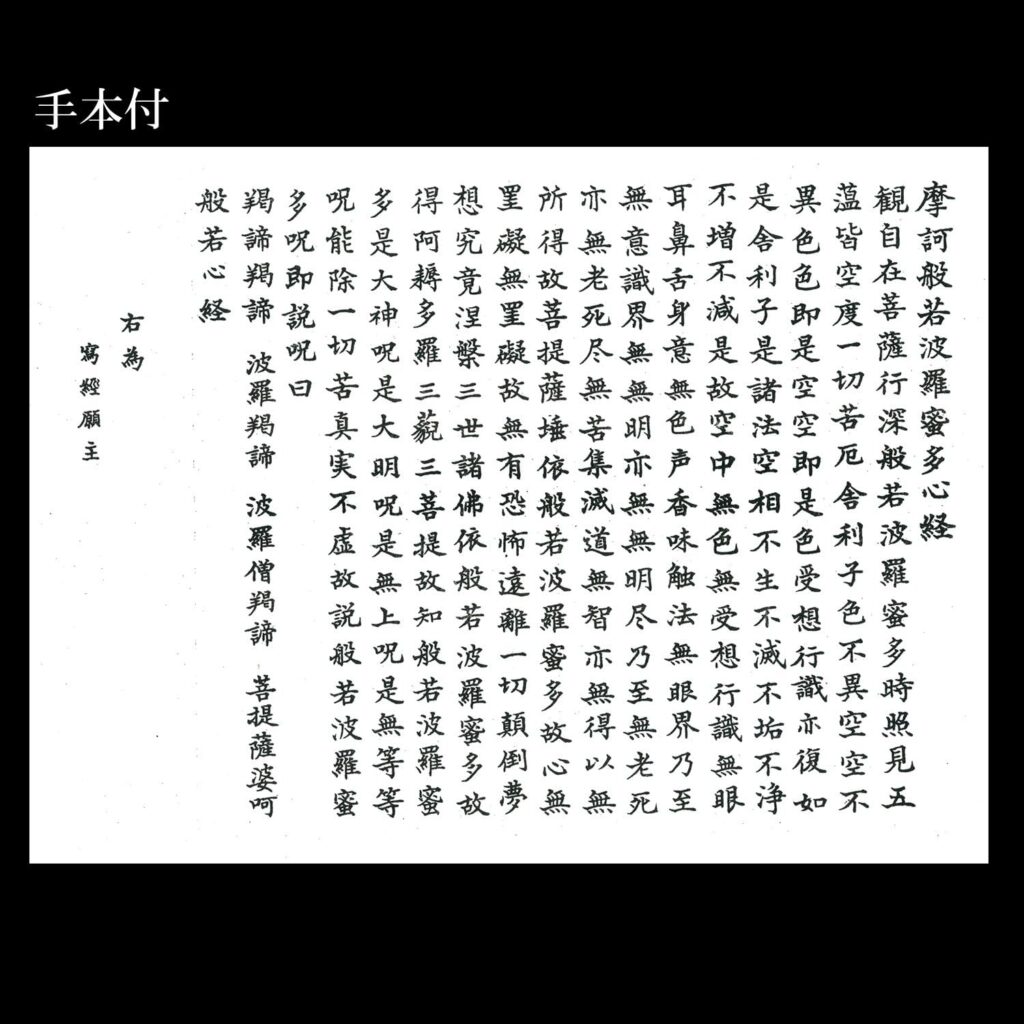 手本付
摩訶般若波羅蜜多心経
観自在菩薩行深般若波羅蜜多時照見五
薀皆空度一切苦厄舎利子色不異空空不
異色色即是空空即是色受想行識亦復如
是舎利子是諸法空相不生不滅不垢不浄
不増不減是故空中無色無受想行識無眼
耳鼻舌身意無色声香味触法無眼界乃至
無意識界無無明亦無無明尽乃至無老死
亦無老死尽無苦集滅道無智亦無得以無
所得故菩提薩埵依般若波羅蜜多故心無
罣礙無罣礙故無有恐怖遠離一切顛倒夢
想究竟涅槃三世諸佛依般若波羅蜜多故
得阿耨多羅三藐三菩提故知般若波羅蜜
多是大神呪是大明呪是無上呪是無等等
呪能除一切苦真実不虚故説般若波羅蜜
多呪即説呪曰
羯諦羯諦 波羅羯諦 波羅僧羯諦 菩提薩婆呵
般若心経
右為
寫經願主